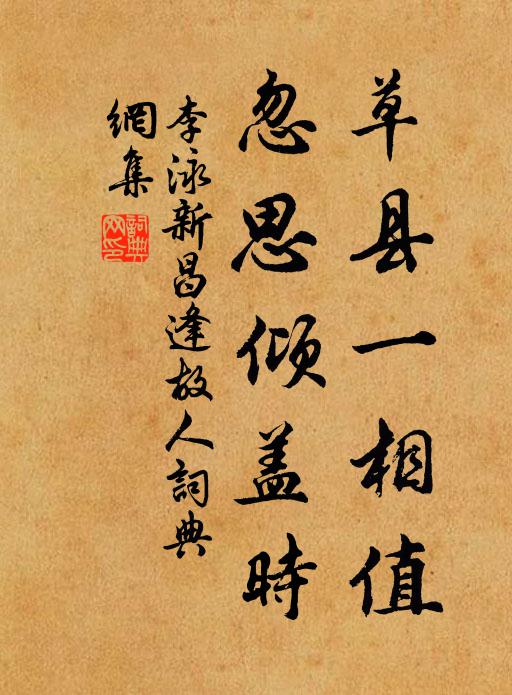 草县一相值
忽思倾盖時
李泳新昌逢故人詞典
網集
詞典網印